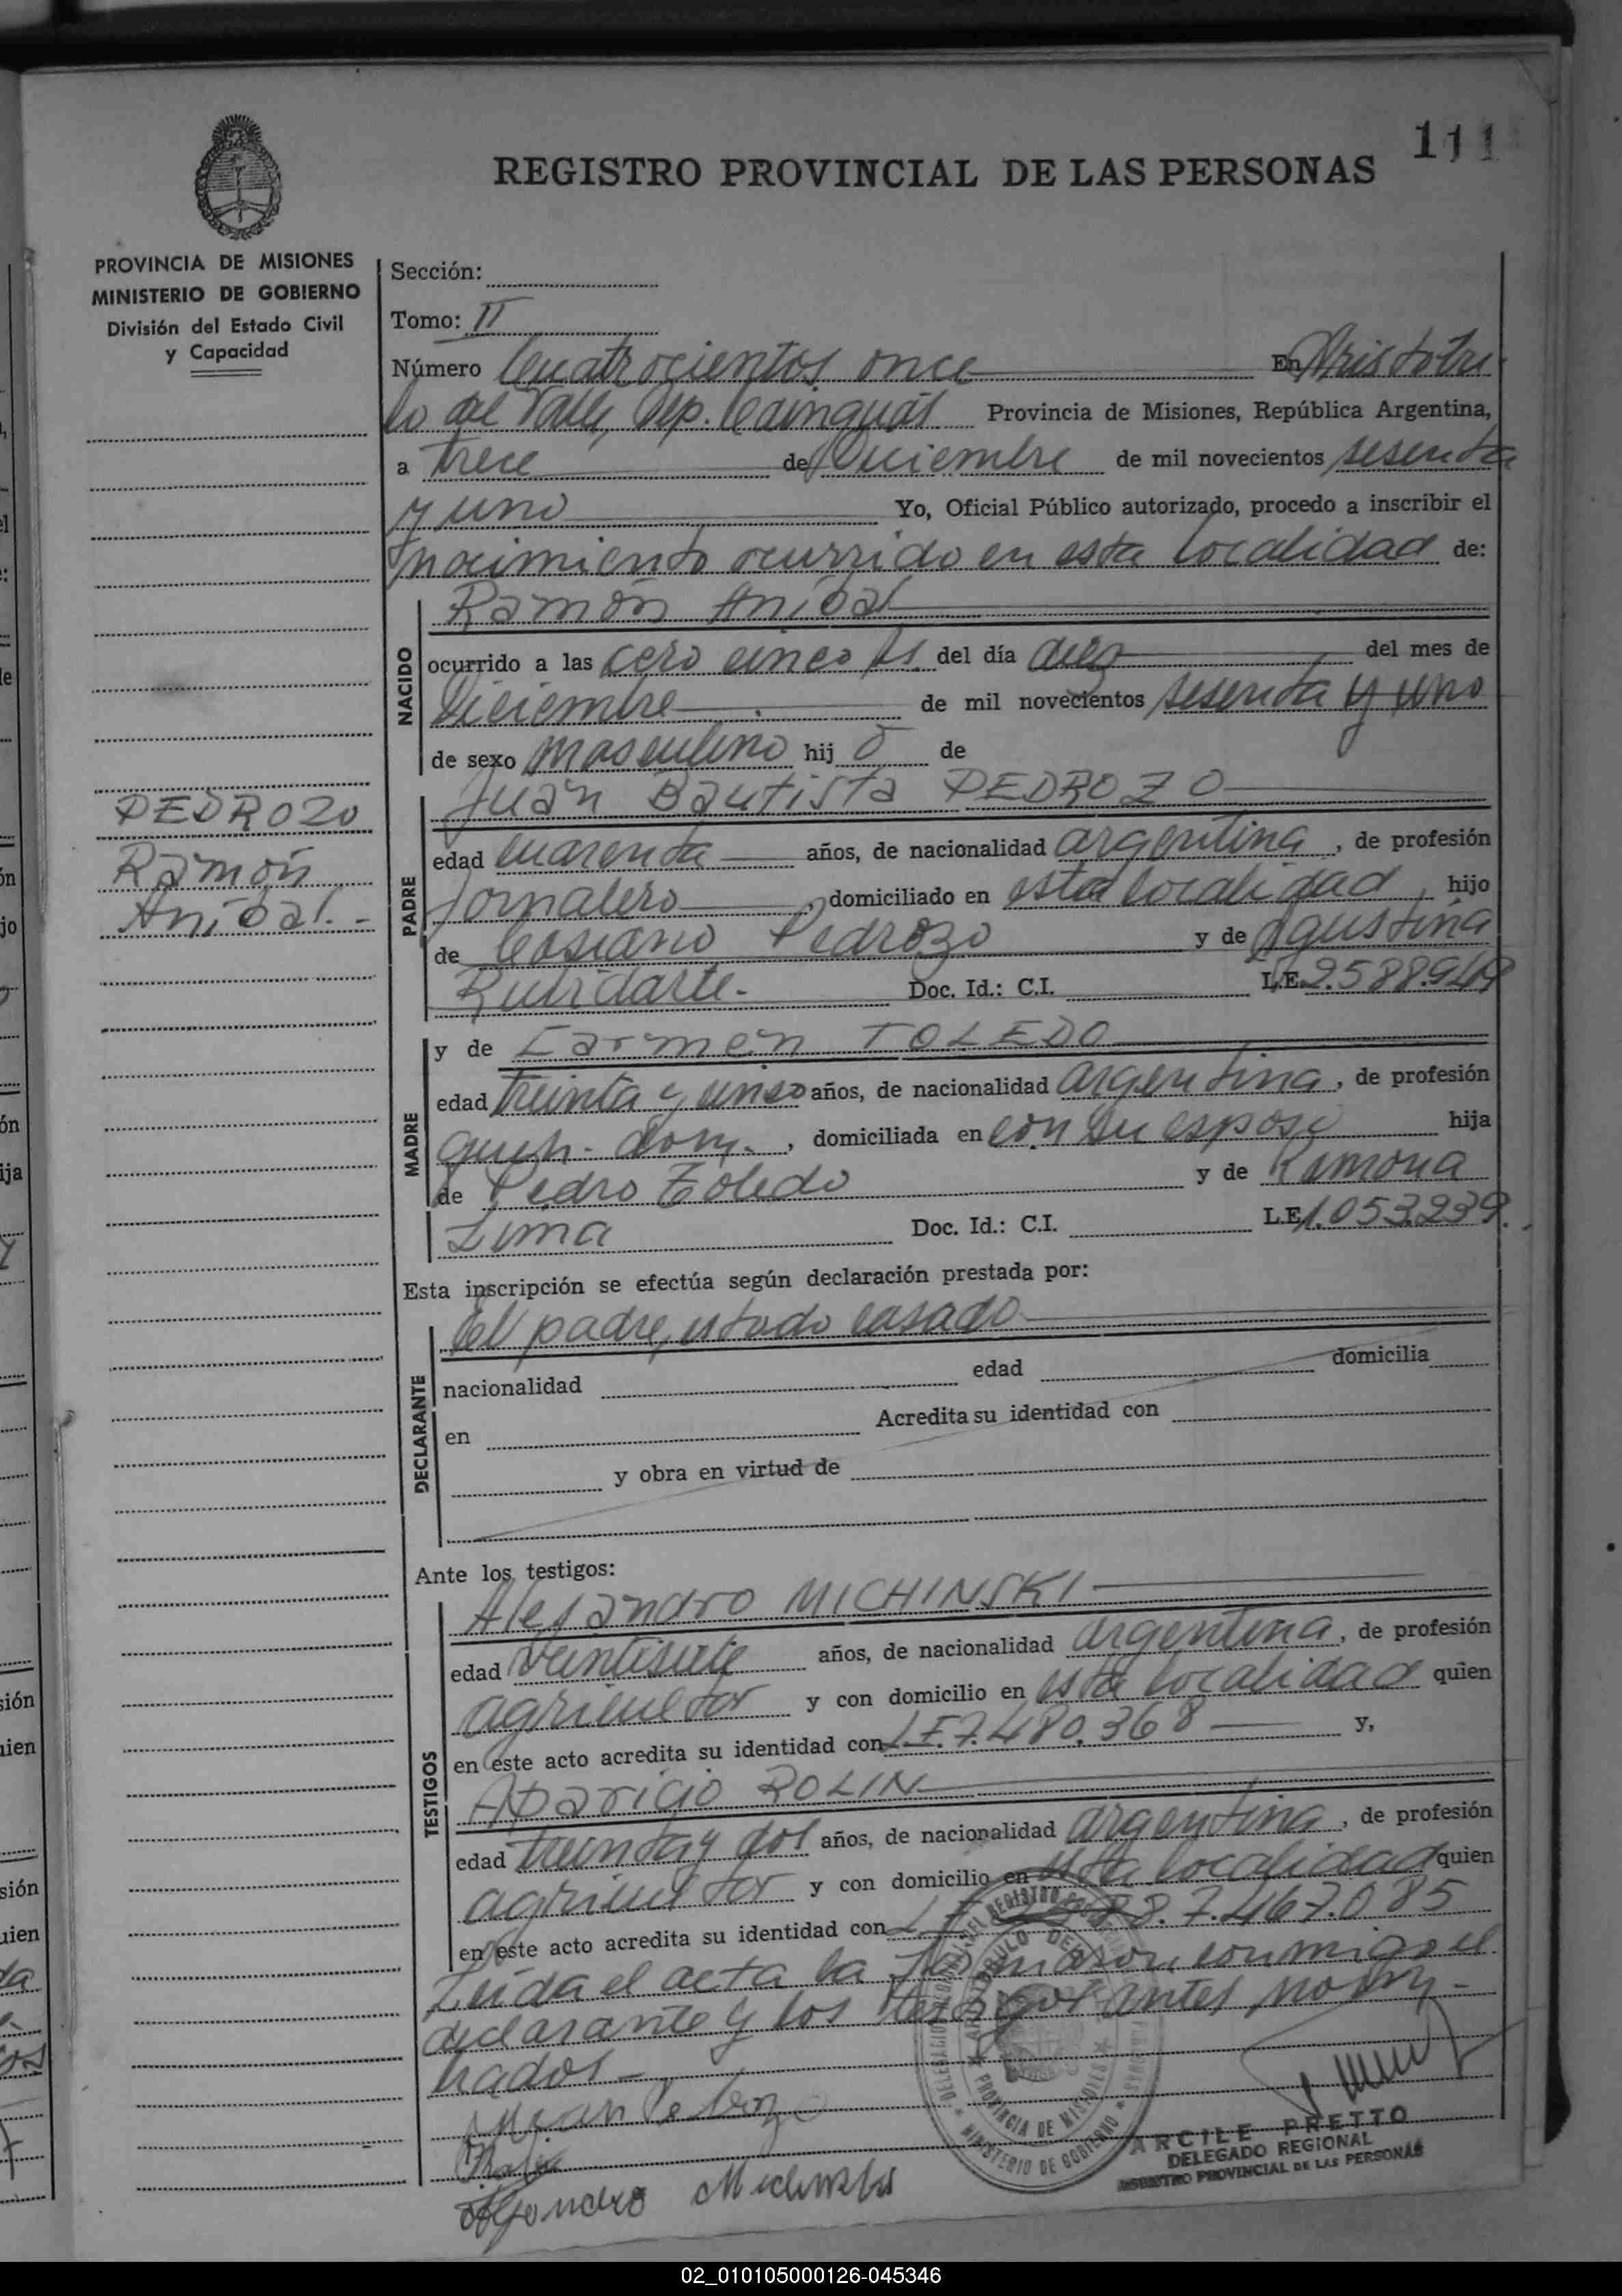 111
REGISTRO PROVINCIAL DE LAS PERSONAS
PROVINCIA DE MISIONES
MINISTERIO DE GOBIERNO
División del Estado Civil
y Capacidad
Sección:
Tomo: II
Número Cuatrocientos once En Aristóbu
lo del Valle, Dep. Cainguás Provincia de Misiones, República Argentina,
a trece de Diciembre de mil novecientos sesenta
y uno Yo, Oficial Público autorizado, procedo a inscribir el
nacimiento ocurrido en esta localidad de:
NACIDO
Ramón Aníbal
ocurrido a las cero cinco hs. del día diez del mes de
Diciembre de mil novecientos sesenta y uno
de sexo masculino hij o de
PEDROZO
Ramón
Aníbal.-
PADRE
Juan Bautista PEDROZO
edad cuarenta años, de nacionalidad argentina, de profesión
jornalero, domiciliado en esta localidad, hijo
de Casiano Pedrozo y de Agustina
Doc. Id.: C.I. L.E. 2.588.949
MADRE
y de Carmen TOLEDO
edad treinta y cinco años, de nacionalidad argentina, de profesión
queh. dom., domiciliada en con su esposo hija
de Pedro Toledo y de Ramona
Lima Doc. Id.: C.I. L.E. 1.053.239.
Esta inscripción se efectúa según declaración prestada por:
DECLARANTE
El padre, estado casado
nacionalidad edad domicilia
en Acredita su identidad con
y obra en virtud de
Ante los testigos:
TESTIGOS
Alejandro MICHINSKI
edad veintisiete años, de nacionalidad argentina, de profesión
agricultor y con domicilio en esta localidad quien
en este acto acredita su identidad con L.E. 7.480.368 y,
Aparicio ROLIN
edad treinta y dos años, de nacionalidad argentina, de profesión
agricultor y con domicilio en esta localidad quien
en este acto acredita su identidad con L.E. 7.467.085
Leída el acta la firmaron conmigo el
declarante y los testigos antes nom-
brados.-
Juan Pedrozo
Alejandro Michinski
DELEGACION DEL REGISTRO PROVINCIAL DE LAS PERSONAS
ARISTOBULO DEL VALLE
PROVINCIA DE MISIONES
MINISTERIO DE GOBIERNO
ARCILE PRETTO
DELEGADO REGIONAL
REGISTRO PROVINCIAL DE LAS PERSONAS
02_010105000126-045346